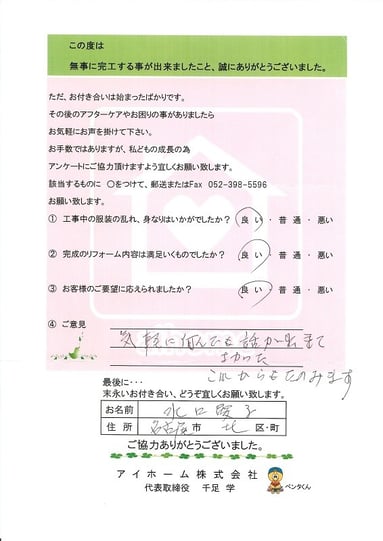 この度は
無事に完工する事が出来ましたこと、誠にありがとうございました。
ただ、お付き合いは始まったばかりです。
その後のアフターケアやお困りの事がありましたら
お気軽にお声を掛けて下さい。
お手数ではありますが、私どもの成長の為
アンケートにご協力頂けますよう宜しくお願い致します。
該当するものに 〇をつけて、郵送またはFax 052-398-5596
お願い致します。
① 工事中の服装の乱れ、身なりはいかがでしたか? 良 い ・ 普 通 ・ 悪い
② 完成のリフォーム内容は満足いくものでしたか? 良 い ・ 普 通 ・ 悪い
③ お客様のご要望に応えられましたか? 良 い ・ 普 通 ・ 悪い
④ ご意見
気軽に何んでも話が出来て
よかった
これからもたのみます
最後に・・・
末永いお付き合い、どうぞ宜しくお願い致します。
お名前 水口
住 所 名古屋 市 北 区・町
ご協力ありがとうございました。
アイホーム株式会社
代表取締役 千足 学
ペンタくん